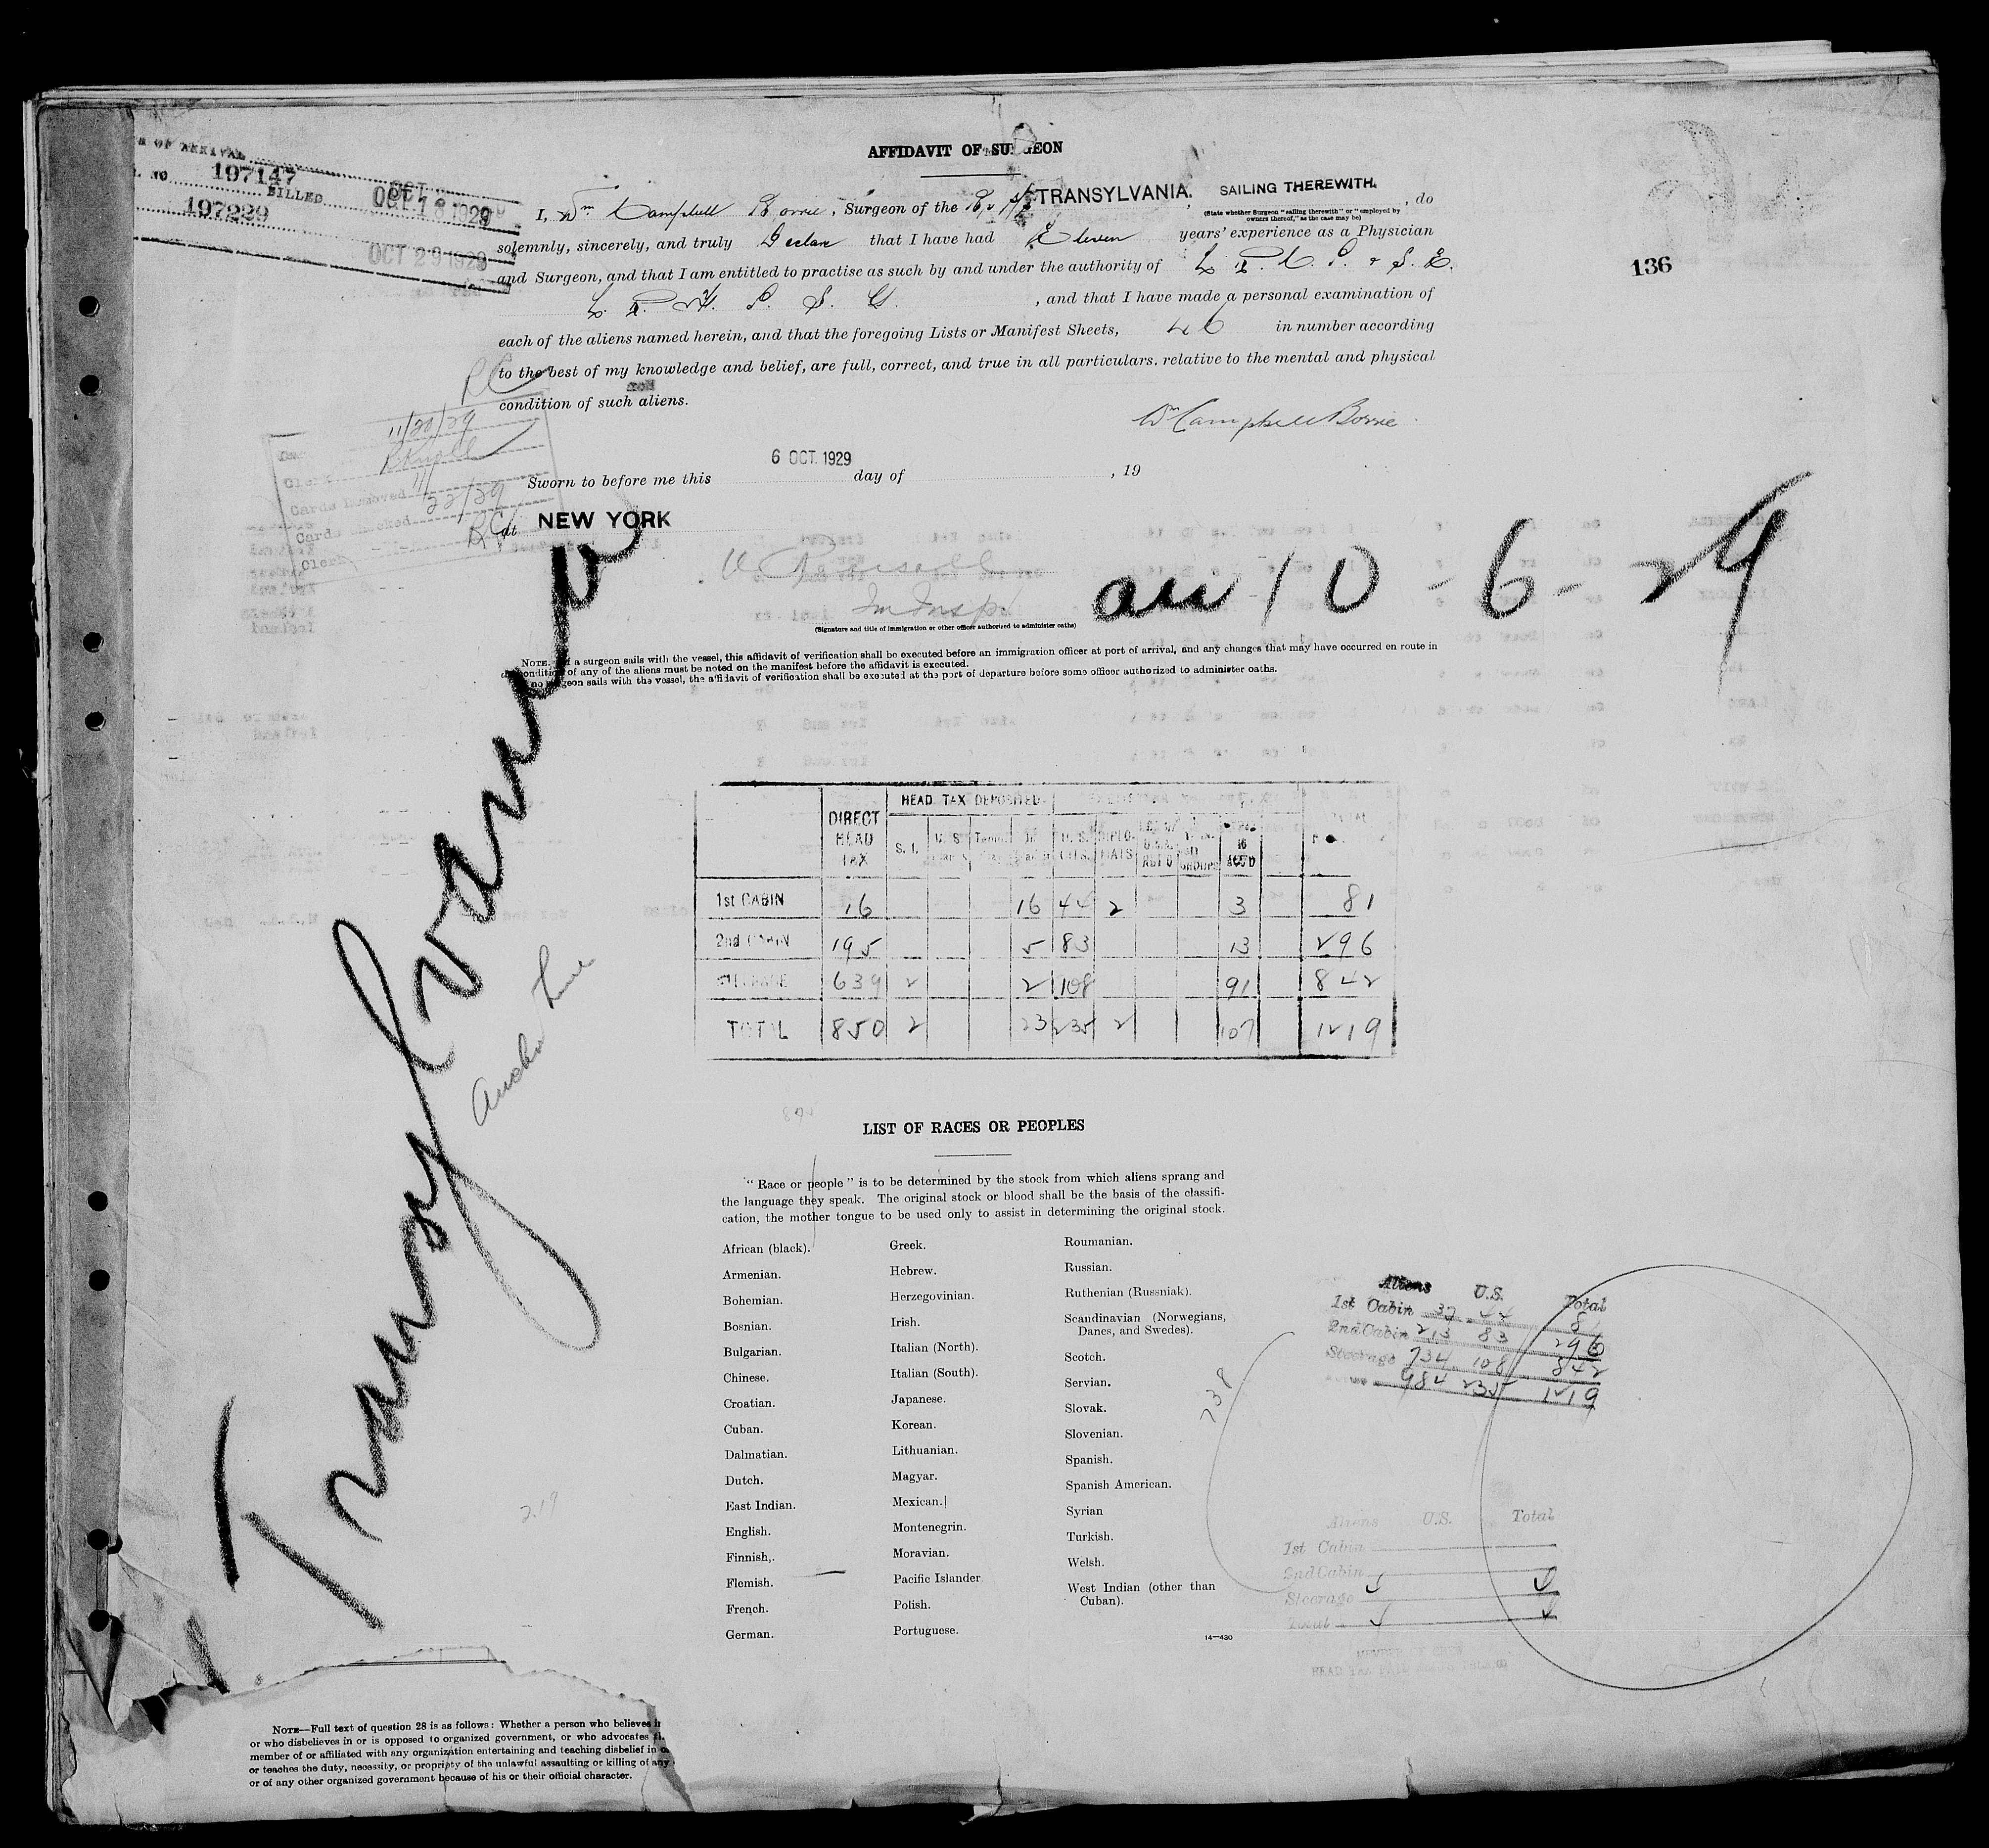 OF ARRIVAL
NO 197147
BILLED OCT 18 1929
197229
OCT 29 1929
AFFIDAVIT OF SURGEON
I, Wm Campbell Borrie, Surgeon of the TRANSYLVANIA. SAILING THEREWITH. , do
(State whether Surgeon "sailing therewith" or "employed by
owners thereof," as the case may be)
solemnly, sincerely, and truly Declare that I have had Eleven years' experience as a Physician
and Surgeon, and that I am entitled to practise as such by and under the authority of L. R. C. P. & S. E.
L. R. F. P. S. G. , and that I have made a personal examination of
136
each of the aliens named herein, and that the foregoing Lists or Manifest Sheets, 46 in number according
to the best of my knowledge and belief, are full, correct, and true in all particulars. relative to the mental and physical
condition of such aliens.
Wm Campbell Borrie
11/20/29
Clerk
Cards Removed
Cards 22/29
Clerk
6 OCT. 1929
Sworn to before me this day of , 19
at NEW YORK
Im Insp.
(Signature and title of immigration or other officer authorized to administer oaths)
arr 10-6-29
NOTE. If a surgeon sails with the vessel, this affidavit of verification shall be executed before an immigration officer at port of arrival, and any changes that may have occurred en route in
condition of any of the aliens must be noted on the manifest before the affidavit is executed.
no surgeon sails with the vessel, the affidavit of verification shall be executed at the port of departure before some officer authorized to administer oaths.
Transylvania
Anchor Line
HEAD TAX DEPOSITED
DIRECT HEAD TAX S. I. U. S. CITS.
1st CABIN 16 16 44 2 3 81
2nd CABIN 195 5 83 13 296
STEERAGE 639 2 2 108 91 842
TOTAL 850 2 23 235 2 107 1219
LIST OF RACES OR PEOPLES
"Race or people" is to be determined by the stock from which aliens sprang and
the language they speak. The original stock or blood shall be the basis of the classifi-
cation, the mother tongue to be used only to assist in determining the original stock.
African (black).
Armenian.
Bohemian.
Bosnian.
Bulgarian.
Chinese.
Croatian.
Cuban.
Dalmatian.
Dutch.
East Indian.
English.
Finnish,.
Flemish.
French.
German.
Greek.
Hebrew.
Herzegovinian.
Irish.
Italian (North).
Italian (South).
Japanese.
Korean.
Lithuanian.
Magyar.
Mexican.
Montenegrin.
Moravian.
Pacific Islander
Polish.
Portuguese.
Roumanian.
Russian.
Ruthenian (Russniak).
Scandinavian (Norwegians,
Danes, and Swedes).
Scotch.
Servian.
Slovak.
Slovenian.
Spanish.
Spanish American.
Syrian
Turkish.
Welsh.
West Indian (other than
Cuban).
14—430
738
219
Aliens U.S. Total
1st Cabin 37 44 81
2nd Cabin 213 83 296
Steerage 734 108 842
984 235 1219
Aliens U.S. Total
1st Cabin
2nd Cabin
Steerage
Total
NOTE—Full text of question 28 is as follows: Whether a person who believes in
or who disbelieves in or is opposed to organized government, or who advocates
member of or affiliated with any organization entertaining and teaching disbelief in
or teaches the duty, necessity, or propriety of the unlawful assaulting or killing of any
or of any other organized government because of his or their official character.